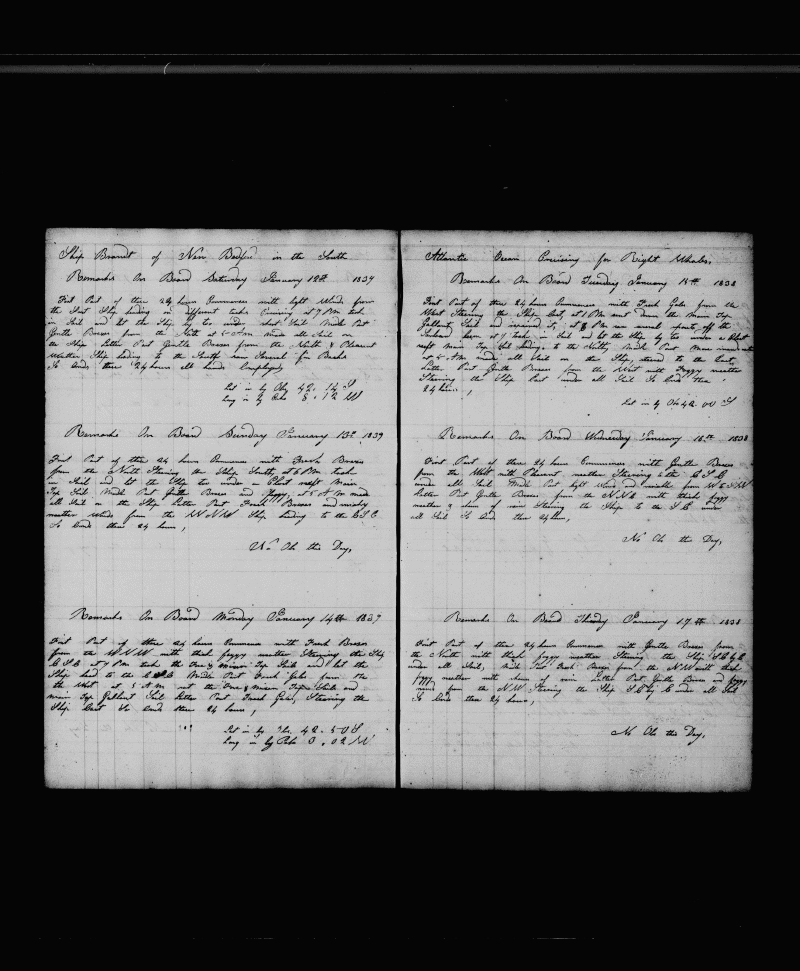 Ship Brandt of New Bedford in the South
Remarks On Board Saturday January 12th 1839
First Part of these 24 hours Commences with light Winds from
the East Ship heading on different tacks Cruising at 7 PM took
in Sail and let the Ship lay too under short Sail Middle Part
Gentle Breeses from the North at 4 AM Made all Sail on
the Ship Latter Part Gentle Breeses from the North & Pleasent
Weather Ship heading to the South
So Ends these 24 hours all hands Employed
Lat in by Obs 42.14 S
Long in by 8.12 W
Remarks On Board Sunday January 13th 1839
First Part of these 24 hours Commences with Fresh Breeses
from the North Stearing the Ship South, at 6 PM took
in Sail and let the Ship too under a Close reeft Main
Top Sail Middle Part Gentle Breeses and foggy, at 5 AM made
all Sail on the Ship Latter Part Fresh Breeses and
weather Winds from the WNW Ship heading to the
So Ends these 24 hours,
No Ob this Day,
Remarks On Board Monday January 14th 1839
First Part of these 24 hours Commences with Fresh Breeses
from the WNW with thick foggy weather Stearing the Ship
ESE at 7 PM took the Fore & mizen Top Sails and let the
Ship head to the Middle Part Fresh Gales from the
the West at 5 AM set the Fore & Mizen Top Sails and
main Top Gallant Sail Latter Part Fresh Gales, Stearing the
Ship East So Ends these 24 hours,
Lat in by Obs. 42.50 S
Long in by 0.02 W
Atlantic Ocean Cruising for Right Whales,
Remarks On Board Tuesday January 15th 1838
First Part of these 24 hours Commences with Fresh Gales from the
West Stearing the Ship East, at 1 PM sent down the Main Top
Gallant Sail and it, at 8 PM
at 7 took in Sail and let the Ship lay too under a Close
reeft Main Top Sail heading to the Middle Part More
at 4 AM made all Sail on the Ship to the East,
Latter Part Gentle Breeses from the West with Foggy weather
Stearing the Ship East under all Sail So Ends these
24 hours,
Lat in by Obs 42.00 S
Remarks On Board Wednesday January 16th 1838
First Part of these 24 hours Commences with Gentle Breeses
from the West with Pleasent weather Stearing to the ESE
under all Sail, Middle Part light Winds and from
Latter Part Gentle Breeses from the NNE with thick foggy
weather & of rain Stearing the Ship to the SE under
all Sail So Ends these 24 hours,
No Ob this Day,
Remarks On Board Thusday January 17th 1838
First Part of these 24 hours Commences with Gentle Breeses from
the North with thick foggy weather Stearing the Ship
under all Sail, Middle Part Fresh Breeses from the NW with thick
foggy weather with of rain Latter Part Gentle Breeses and foggy
from the NW Stearing the Ship SE by E under all Sail
So Ends these 24 hours,
No Ob this Day,